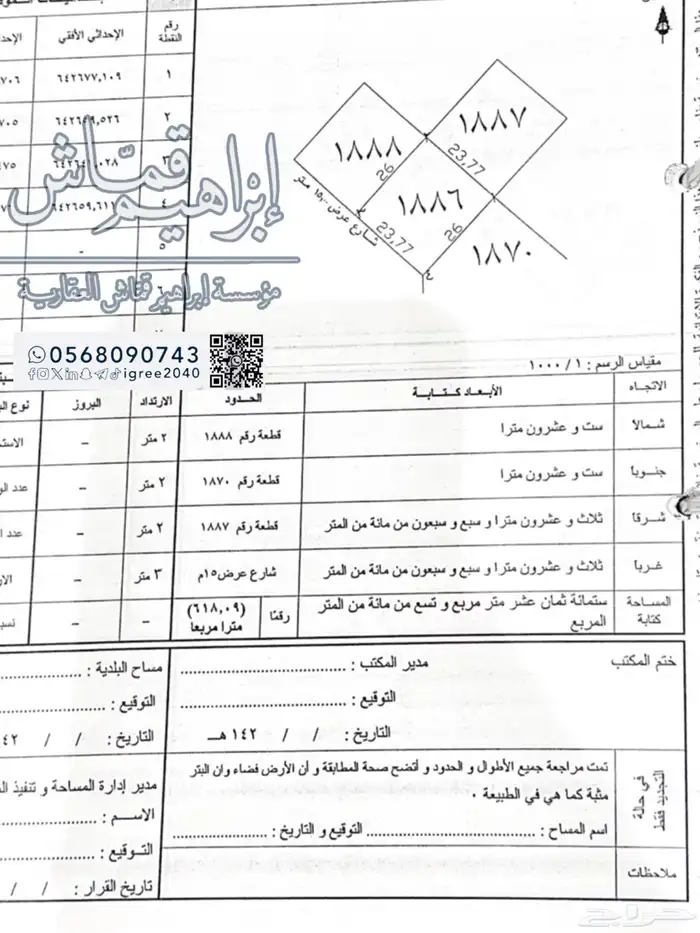 رقم النقطة
الإحداثي الأفقي
١
٦٤٢٦٧٧,١٠٩
٢
٦٤٢٦٤٩,٥٢٦
٣
٤
٦٤٢٦٥٩,٦١٢
٥
-
١٨٨٨
١٨٨٧
١٨٨٦
١٨٧٠
23,77
26
23,77
26
شارع عرض ١٥,٠ متر
إبراهيم قمّاش
مؤسسة إبراهيم قمّاش العقارية
0568090743
igree2040
مقياس الرسم : ١ / ١٠٠٠
الاتجاه
الأبعاد كتابة
الحدود
الارتداد
البروز
شمالا
ست و عشرون مترا
قطعة رقم ١٨٨٨
٢ متر
-
جنوبا
ست و عشرون مترا
قطعة رقم ١٨٧٠
٢ متر
-
شرقا
ثلاث و عشرون مترا و سبع و سبعون من مائة من المتر
قطعة رقم ١٨٨٧
٢ متر
-
غربا
ثلاث و عشرون مترا و سبع و سبعون من مائة من المتر
شارع عرض١٥م
٣ متر
-
المساحة كتابة
ستمائة ثمان عشر متر مربع و تسع من مائة من المتر المربع
رقمًا
(٦١٨,٠٩) مترا مربعا
-
-
ختم المكتب
مدير المكتب :
التوقيع :
التاريخ : / / ١٤٢ هـ
مساح البلدية :
التوقيع :
التاريخ : / /
في حالة التجديد فقط
تمت مراجعة جميع الأطوال و الحدود و أتضح صحة المطابقة و أن الأرض فضاء وان البتر
مثبة كما هي في الطبيعة .
اسم المساح : التوقيع و التاريخ :
ملاحظات
مدير إدارة المساحة و تنفيذ
الاسم :
التوقيع :
تاريخ القرار : / /
حراج